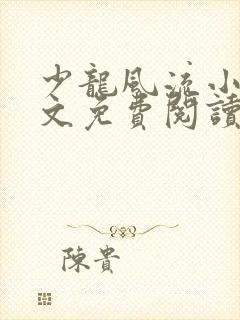 少龍風流小
文免費閱讀
陳貴